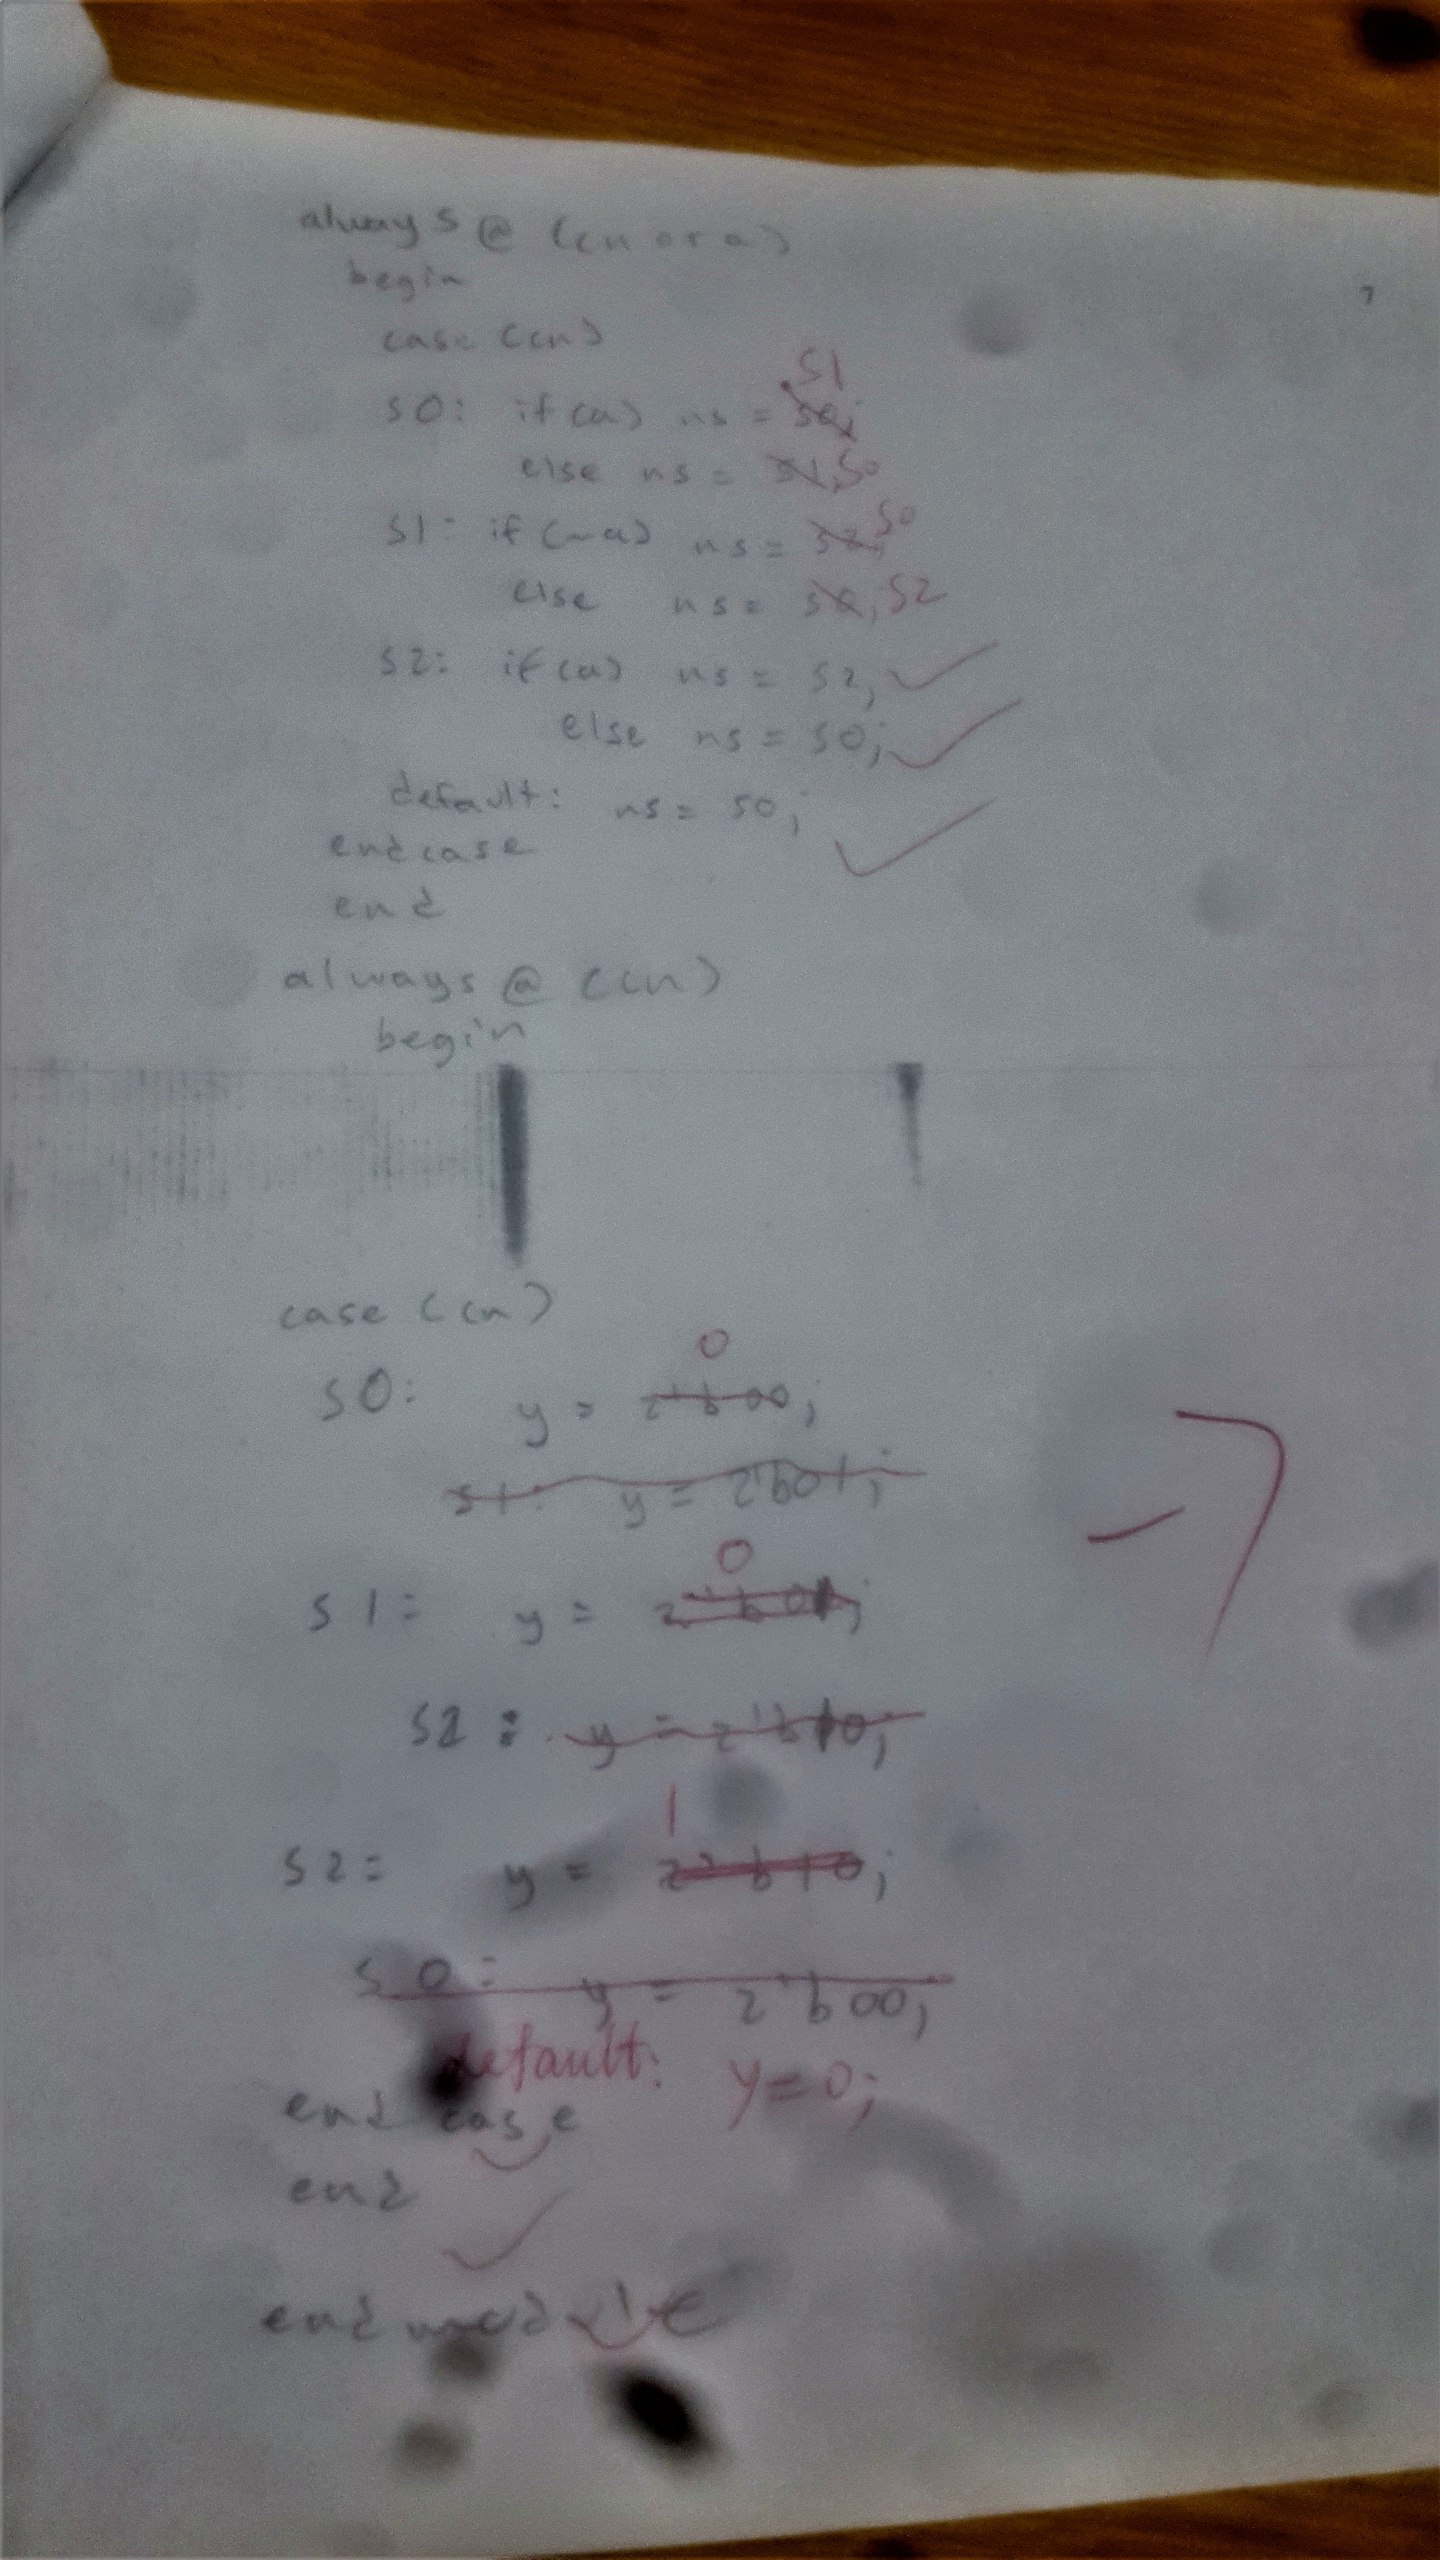 always @ (cn or a)
7
begin
case (cn)
S1
S0: if (a) ns = S0;
else ns = S1; S0
S0
S1: if (~a) ns = S2;
else ns = S0; S2
S2: if (a) ns = S2;
else ns = S0;
default: ns = S0;
endcase
end
always @ (cn)
begin
case (cn)
0
S0: y = 2'b00;
S1: y = 2'b01;
0
S1: y = 2'b01;
-7
S2: y = 2'b10;
1
S2: y = 2'b10;
S0: y = 2'b00;
default: y=0;
end case
end
endmodule